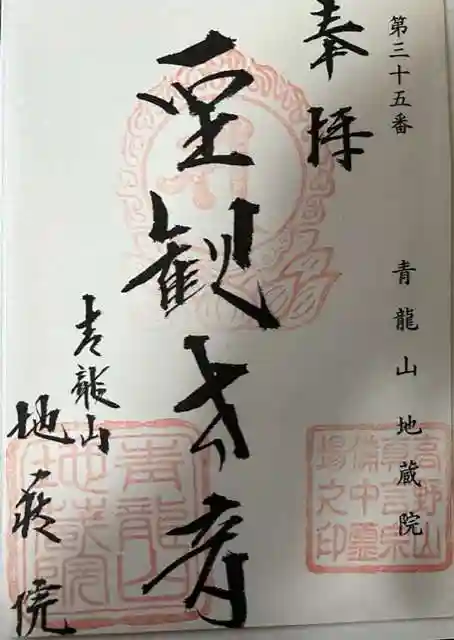 第三十五番 青龍山 地蔵院
奉拝
聖観世音
青龍山
地蔵院
高野山
真言宗
備中霊
場之印
青龍山
地蔵院